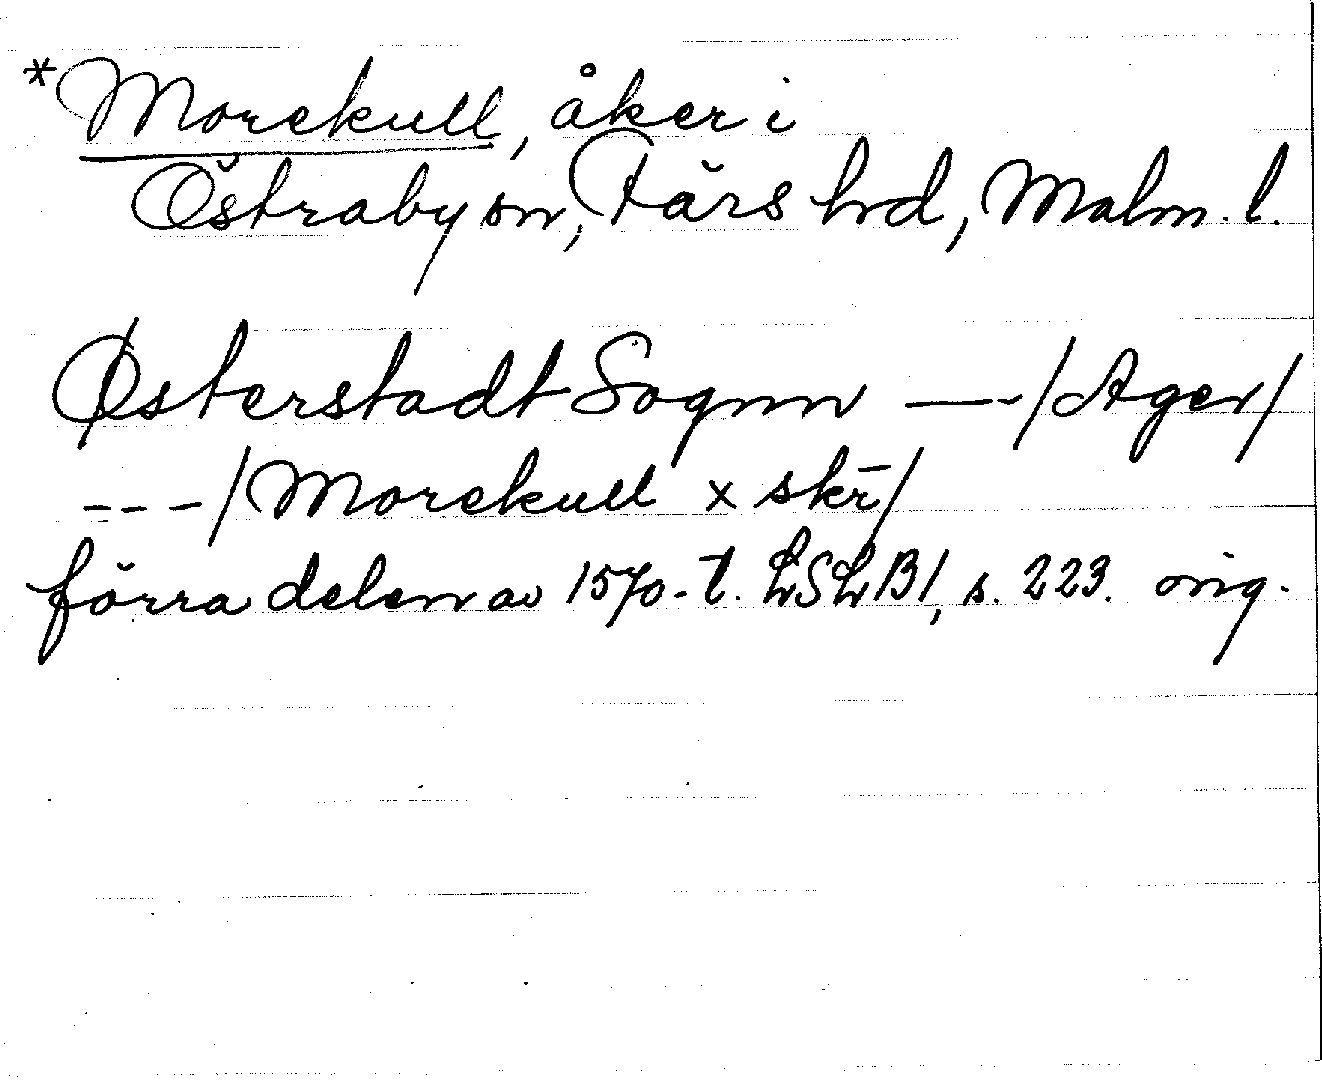 *Morekull, åker i
Östraby sn, Färs hd, Malm. l.
Østerstadt Sognn —-/Ager/
---/Morekull x skr̄/
förra delen av 1570-t. LSLB1, s. 223. orig.